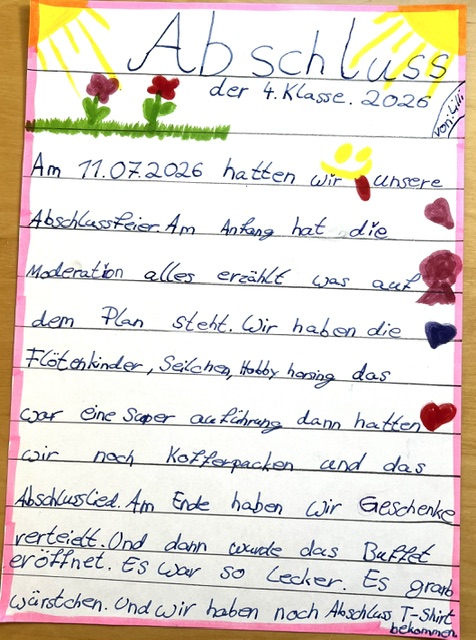 Abschluss
der 4. Klasse. 2026
von: Lilli
Am 11.07.2026 hatten wir unsere
Abschlussfeier. Am Anfang hat die
Moderation alles erzählt was auf
dem Plan steht. Wir haben die
Flötenkinder, Seilchen, Hobby horsing das
war eine Super aufführung dann hatten
wir noch Kofferpacken und das
Abschlusslied. Am Ende haben wir Geschenke
verteielt. Und dann wurde das Buffet
eröffnet. Es war so Lecker. Es grab
würstchen. Und wir haben noch Abschluss T-Shirt
bekommen